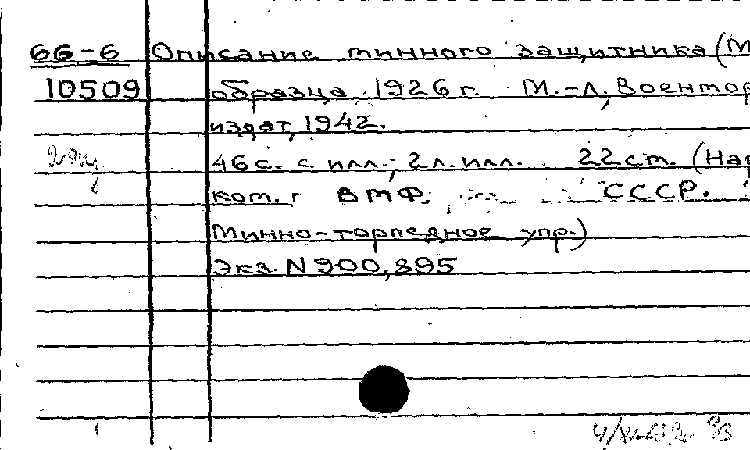 66-6 Описание минного защитника (М
10509 образца 1926 г. М.-Л., Воентор
издат, 1942.
46 с. с илл.; 2 л. илл. 22 ст. (Нар
ком. г ВМФ. СССР.
Минно-торпедное упр.)
Экз. N 900,895